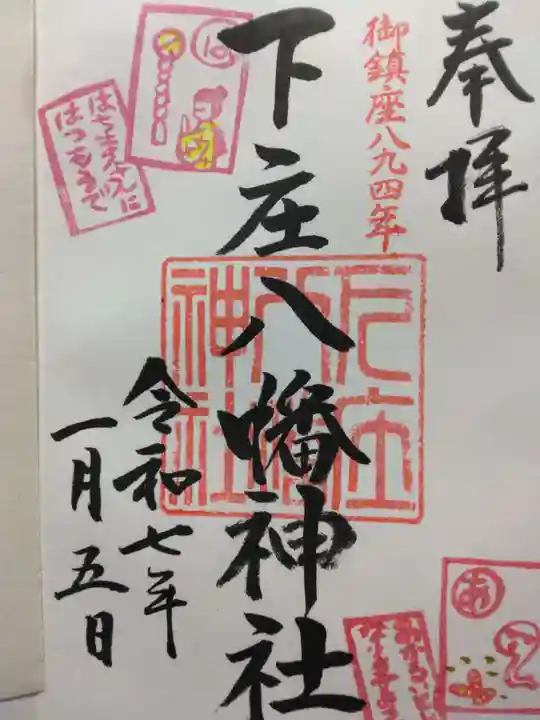 奉拝
御鎮座八九四年
下庄八幡神社
下庄
八幡
神社
令和七年
一月五日
は
はちまんさんに
はつもうで
あ